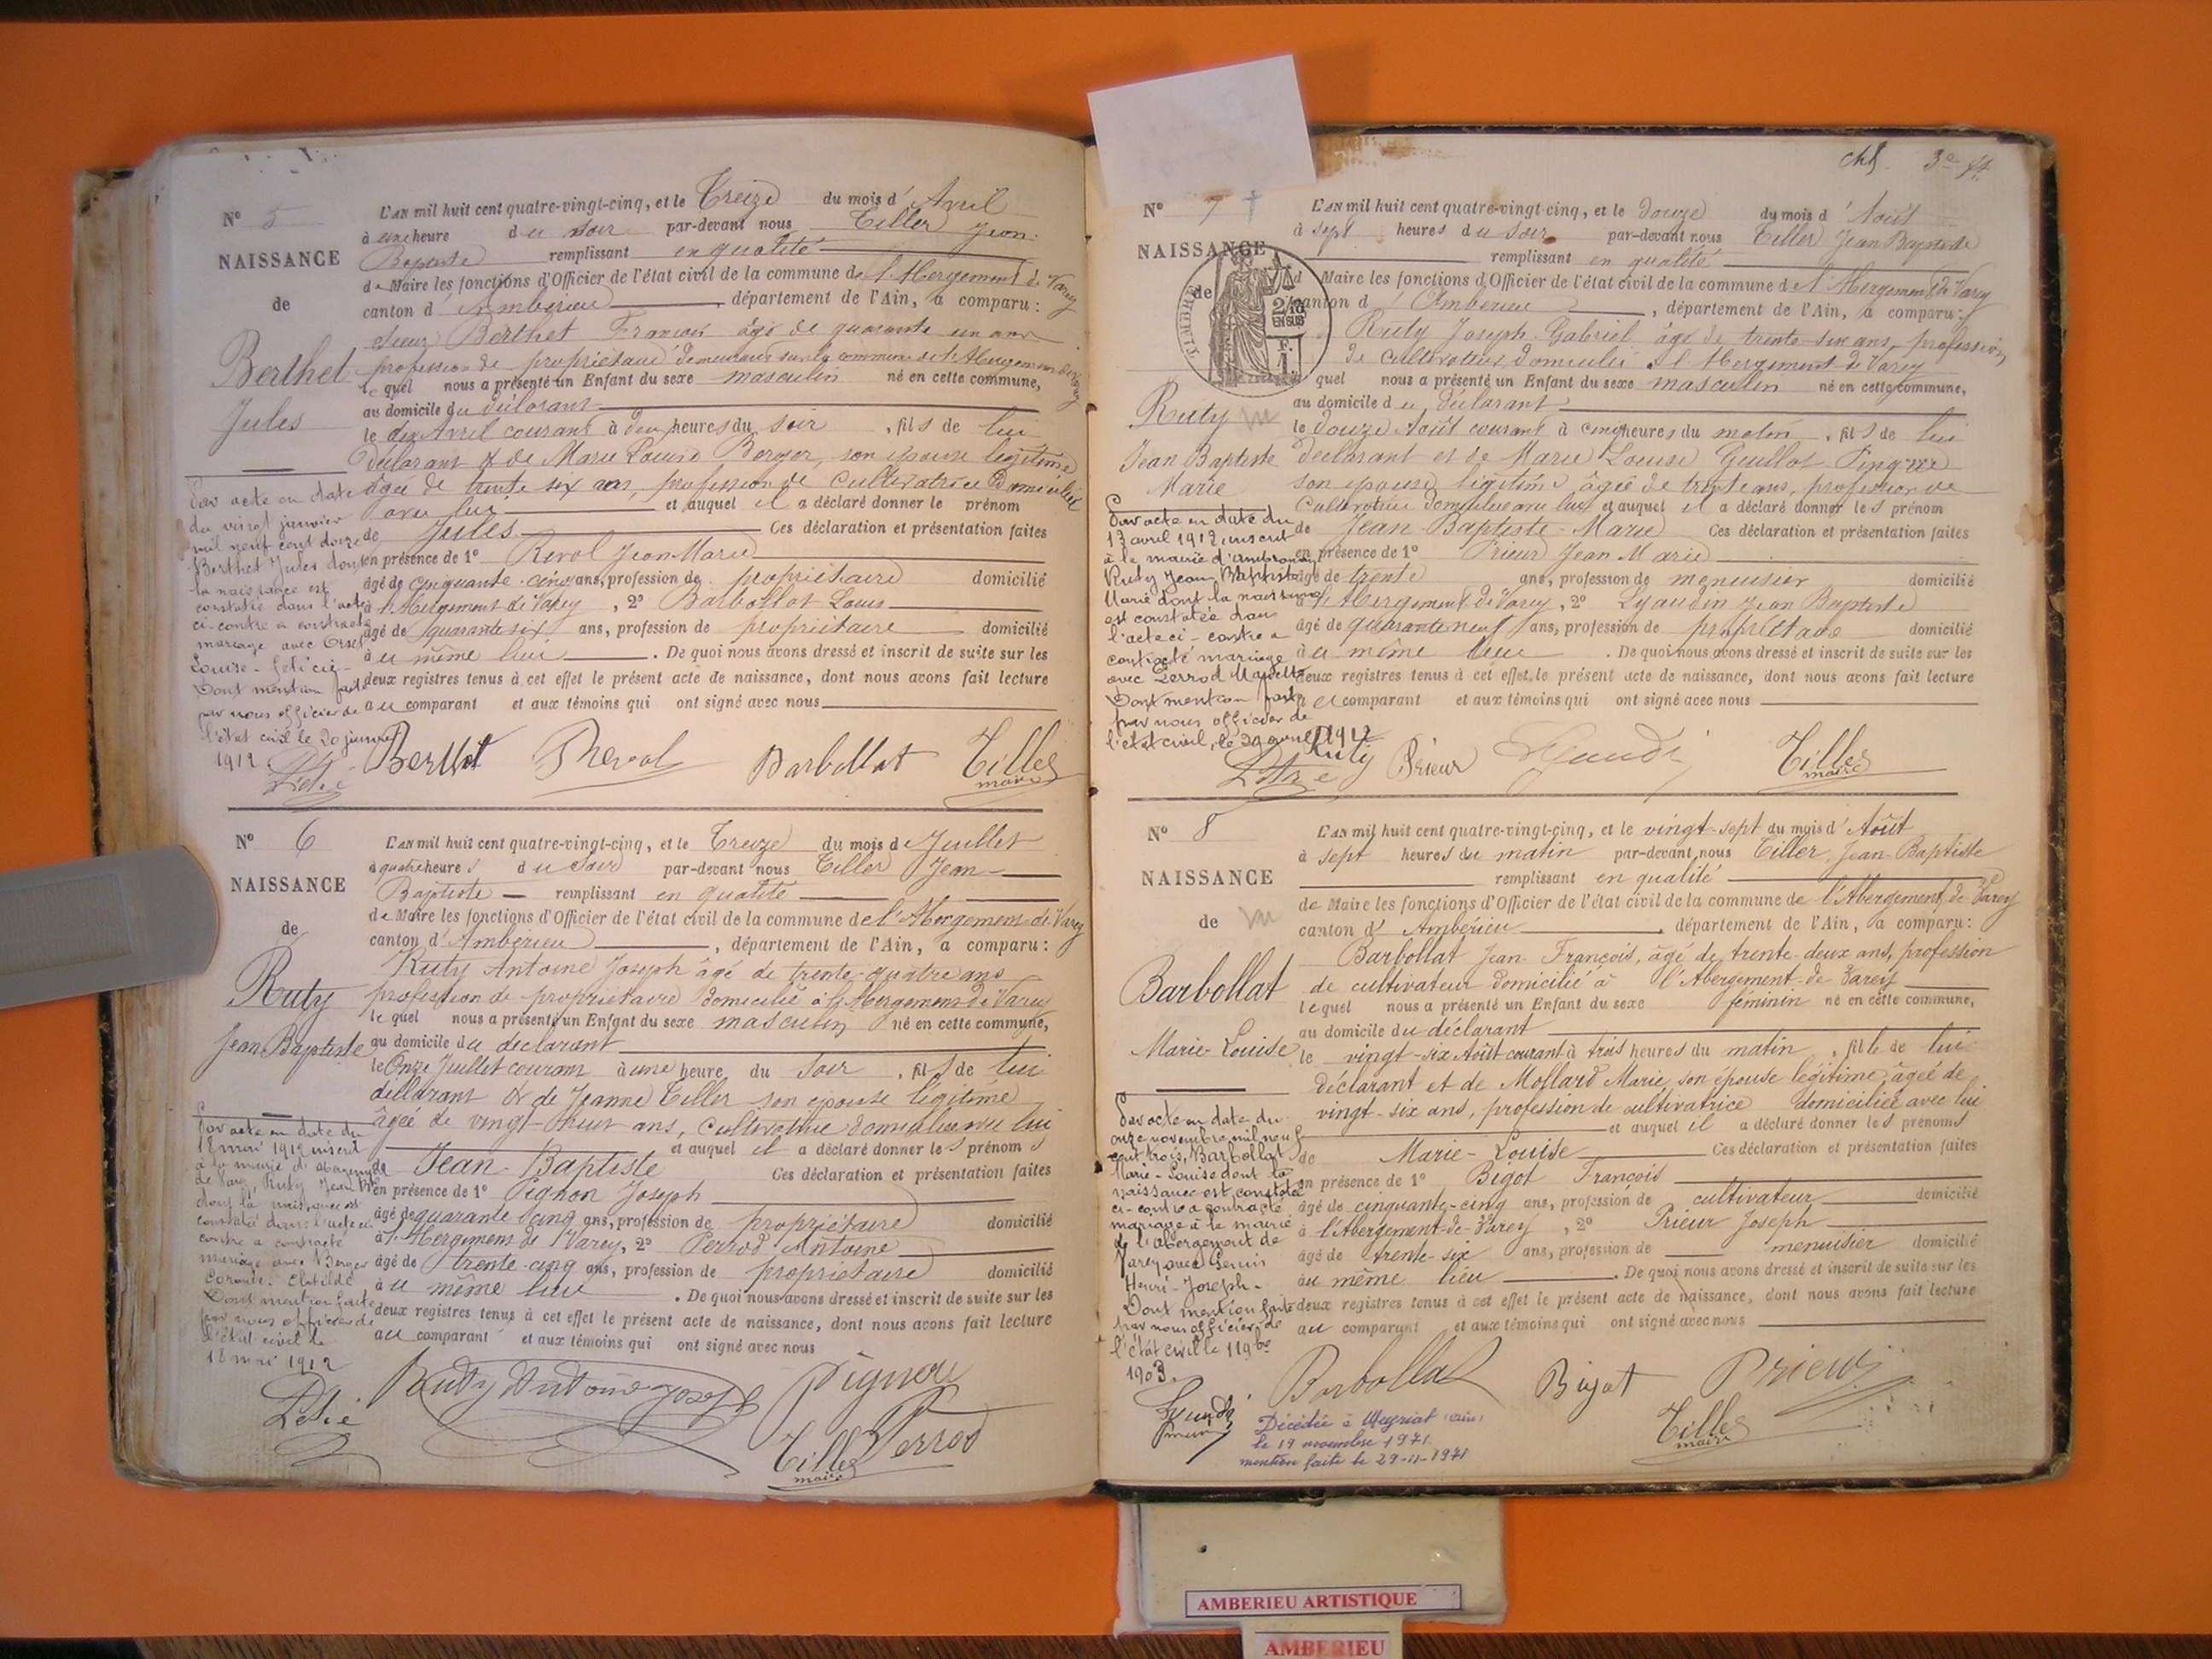 N° 5
NAISSANCE
de
Berthet
Jules
L'AN mil huit cent quatre-vingt-cinq, et le Treize du mois d' Avril
à une heure du soir par-devant nous Tiller Jean
Baptiste remplissant en qualité
de Maire les fonctions d'Officier de l'état civil de la commune de l'Abergement de Varey
canton d' Ambérieu, département de l'Ain, a comparu :
sieur Berthet François âgé de quarante un ans
profession de propriétaire demeurant sur la commune de l'Abergement de Varey
lequel nous a présenté un Enfant du sexe masculin né en cette commune,
au domicile du déclarant
le dix Avril courant à deux heures du soir, fils de lui
déclarant & de Marie Louise Berger, son épouse légitime
âgée de trente six ans, profession de Cultivatrice Domiciliée
avec lui et auquel il a déclaré donner le prénom
de Jules Ces déclaration et présentation faites
en présence de 1° Revol Jean Marie
âgé de cinquante cinq ans, profession de propriétaire domicilié
à l'Abergement de Varey, 2° Barbollat Louis
âgé de quarante six ans, profession de propriétaire domicilié
au même lieu. De quoi nous avons dressé et inscrit de suite sur les
deux registres tenus à cet effet le présent acte de naissance, dont nous avons fait lecture
au comparant et aux témoins qui ont signé avec nous
Par acte en date
du vingt janvier
mil neuf cent douze
Berthet Jules dont
la naissance est
constatée dans l'acte
ci-contre a contracté
mariage avec
Louise-Félicie
Dont mention faite
par nous officier de
l'état civil le 20 janvier
1912
Berthet Revol Barbollat Tiller
maire
N° 6
NAISSANCE
de
Ruty
Jean Baptiste
L'AN mil huit cent quatre-vingt-cinq, et le Treize du mois de Juillet
à quatre heures du soir par-devant nous Tiller Jean
Baptiste remplissant en qualité
de Maire les fonctions d'Officier de l'état civil de la commune de l'Abergement de Varey
canton d' Ambérieu, département de l'Ain, a comparu :
Ruty Antoine Joseph âgé de trente-quatre ans
profession de propriétaire domicilié à l'Abergement de Varey
lequel nous a présenté un Enfant du sexe masculin né en cette commune,
au domicile du déclarant
le Onze Juillet courant à une heure du soir, fils de lui
déclarant & de Jeanne Tiller son épouse légitime
âgée de vingt-huit ans, cultivatrice domiciliée avec lui
et auquel il a déclaré donner les prénoms
de Jean-Baptiste Ces déclaration et présentation faites
en présence de 1° Pignon Joseph
âgé de quarante-cinq ans, profession de propriétaire domicilié
à l'Abergement de Varey, 2° Perrod Antoine
âgé de trente-cinq ans, profession de propriétaire domicilié
au même lieu. De quoi nous avons dressé et inscrit de suite sur les
deux registres tenus à cet effet le présent acte de naissance, dont nous avons fait lecture
au comparant et aux témoins qui ont signé avec nous
Par acte en date du
18 mai 1912 inscrit
à la mairie d'Abergement
de Varey, Ruty Jean Bte
dont la naissance est
constatée dans l'acte ci
contre a contracté
mariage avec Berger
Clotilde
Dont mention faite
par nous officier de
l'état civil le
18 mai 1912
Ruty Antoine Joseph Pignon
Tiller Perrod
maire
N° 7
NAISSANCE
de
TIMBRE
2/10
EN SUS
Ruty
Jean Baptiste
Marie
L'AN mil huit cent quatre-vingt-cinq, et le Douze du mois d' Août
à sept heures du soir par-devant nous Tiller Jean Baptiste
remplissant en qualité
d Maire les fonctions d'Officier de l'état civil de la commune de l'Abergement de Varey
canton d' Ambérieu, département de l'Ain, a comparu :
Ruty Joseph Gabriel âgé de trente-six ans, profession
de cultivateur domicilié à l'Abergement de Varey
quel nous a présenté un Enfant du sexe masculin né en cette commune,
au domicile du déclarant
le Douze Août courant à cinq heures du matin, fils de lui
déclarant et de Marie Louise Guillot
son épouse légitime âgée de trente ans, profession de
Cultivatrice domiciliée avec lui et auquel il a déclaré donner les prénom
de Jean-Baptiste-Marie Ces déclaration et présentation faites
en présence de 1° Prieur Jean Marie
âgé de trente ans, profession de menuisier domicilié
à l'Abergement de Varey, 2° Lyaudin Jean Baptiste
âgé de quarante neuf ans, profession de propriétaire domicilié
au même lieu. De quoi nous avons dressé et inscrit de suite sur les
deux registres tenus à cet effet le présent acte de naissance, dont nous avons fait lecture
au comparant et aux témoins qui ont signé avec nous
Par acte en date du
13 avril 1912 inscrit
à la mairie d'Ambronay
Ruty Jean Baptiste
Marie dont la naissance
est constatée dans
l'acte ci-contre a
contracté mariage
avec Perrod
Dont mention faite
par nous officier de
l'état civil, le 20 avril 1912
Ruty Prieur Tiller
maire
N° 8
NAISSANCE
de
Barbollat
Marie-Louise
L'AN mil huit cent quatre-vingt-cinq, et le vingt-sept du mois d' Août
à sept heures du matin par-devant nous Tiller Jean-Baptiste
remplissant en qualité
de Maire les fonctions d'Officier de l'état civil de la commune de l'Abergement de Varey
canton d' Ambérieu, département de l'Ain, a comparu :
Barbollat Jean François, âgé de trente-deux ans, profession
de cultivateur domicilié à l'Abergement-de-Varey
lequel nous a présenté un Enfant du sexe féminin né en cette commune,
au domicile du déclarant
le vingt-six Août courant à trois heures du matin, fille de lui
déclarant et de Mollard Marie, son épouse légitime, âgée de
vingt-six ans, profession de cultivatrice domiciliée avec lui
et auquel il a déclaré donner les prénoms
de Marie-Louise Ces déclaration et présentation faites
en présence de 1° Bigot François
âgé de cinquante-cinq ans, profession de cultivateur domicilié
à l'Abergement-de-Varey, 2° Prieur Joseph
âgé de trente-six ans, profession de menuisier domicilié
au même lieu. De quoi nous avons dressé et inscrit de suite sur les
deux registres tenus à cet effet le présent acte de naissance, dont nous avons fait lecture
au comparant et aux témoins qui ont signé avec nous
Par acte en date du
onze novembre mil neuf
cent trois, Barbollat
Marie-Louise dont la
naissance est constatée
ci-contre a contracté
mariage à la mairie
de l'Abergement de
Varey avec
Henri-Joseph
Dont mention faite
par nous officier de
l'état civil le 11 9bre
1903.
Barbollat Bigot Prieur
Tiller
maire
Décédée à Meyriat (Ain)
le 19 novembre 1971
mention faite le 29-11-1971
AMBERIEU ARTISTIQUE
AMBERIEU